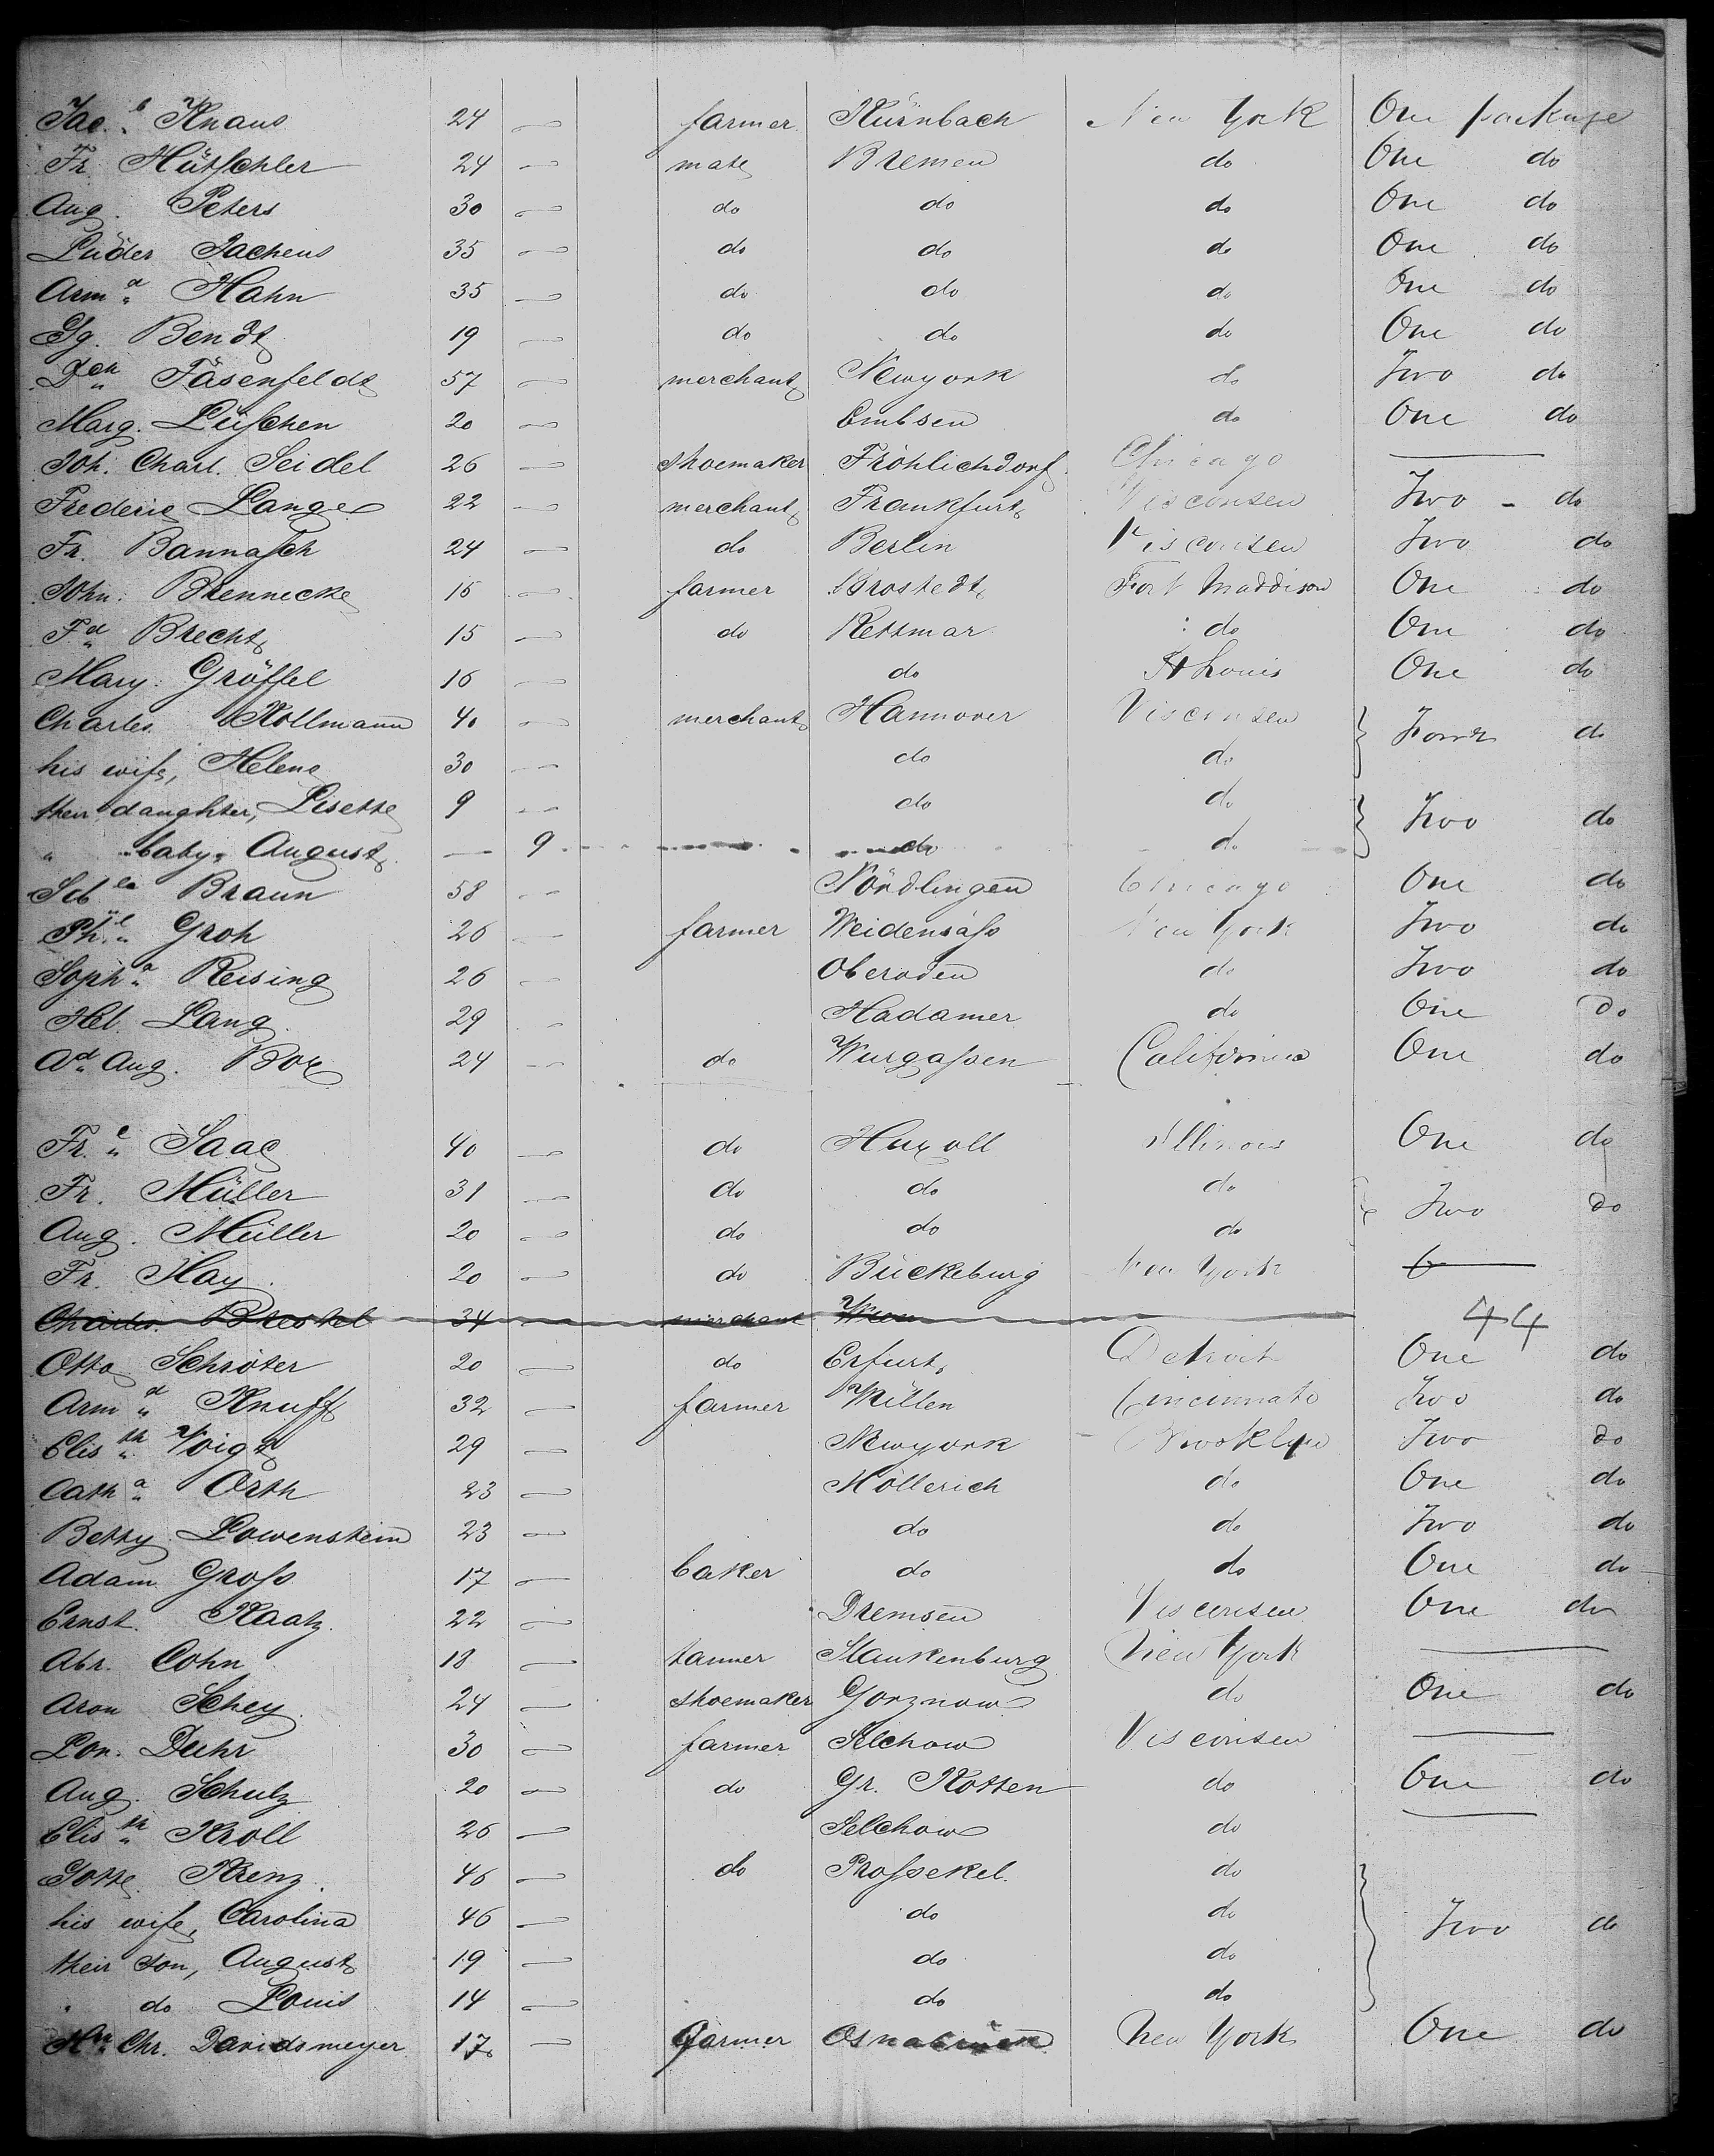 Jac.b Knaus 24 — farmer Kürnbach New York One package
Fr. Hütschler 24 — mate Bremen do One do
Aug. Peters 30 — do do do One do
Lüder Jachens 35 — do do do One do
Arm.d Hahn 35 — do do do One do
Gg. Bendt 19 — do do do One do
Dch Fäsenfeldt 57 — merchant Newyork do Two do
Marg. Lüschen 20 — Embsen do One do
Joh. Charl. Seidel 26 — shoemaker Fröhlichdorf Chicago —
Frederic Lange 22 — merchant Frankfurt Visconsen Two - do
Fr. Bannasch 24 — do Berlin Visconsen Two do
John. Brennecke 15 — farmer Brostedt Fort Maddison One do
Fd Brecht 15 — do Rettmar do One do
Mary. Gröffel 16 — do St Louis One do
Charles Kollmann 40 — merchant Hannover Visconsen Four do
his wife, Helene 30 — do do
their daughter, Lisette 9 — do do Two do
" baby " August — 9 do do
Seb.la Braun 58 — Nördlingen Chicago One do
Ph. Groh 26 — farmer Weidensass New York Two do
Soph.a Reising 26 — Oberoden do Two do
Hel. Lang 29 — Hadamer do One do
Ad. Aug. Box 24 — do Wurgassen California One do
Fr.c Saag 40 — do Huxoll Illinois One do
Fr. Müller 31 — do do do Two do
Aug. Müller 20 — do do do
Fr. Hay 20 — do Bückeburg New York —
Charles. 34 merchant
44
Otto Schröter 20 — do Erfurt Detroit One do
Arm.d Knuff 32 — farmer Willen Cincinnati Two do
Elis.th Voigt 29 — Newyork Brooklyn Two do
Cath.a Orth 23 — Höllerich do One do
Betty Lowenstein 23 — do do Two do
Adam Gross 17 — baker do do One do
Ernst. Kaatz 22 — Dremsen Visconsen One do
Abr. Cohn 18 — tanner Slaukenburg New York —
Aron Schey 24 — shoemaker Gorznow do One do
Lon. Duhr 30 — farmer Selchow Visconsen —
Aug. Schulz 20 — do Gr. Kotten do One do
Elis.th Kroll 26 — Selchow do —
Gotte. Krenz 46 — do Prossekel do Two do
his wife, Carolina 46 — do do
their son, August 19 — do do
" do Louis 14 — do do
Hn. Chr. Davidsmeyer 17 — farmer Osnabrück New York One do